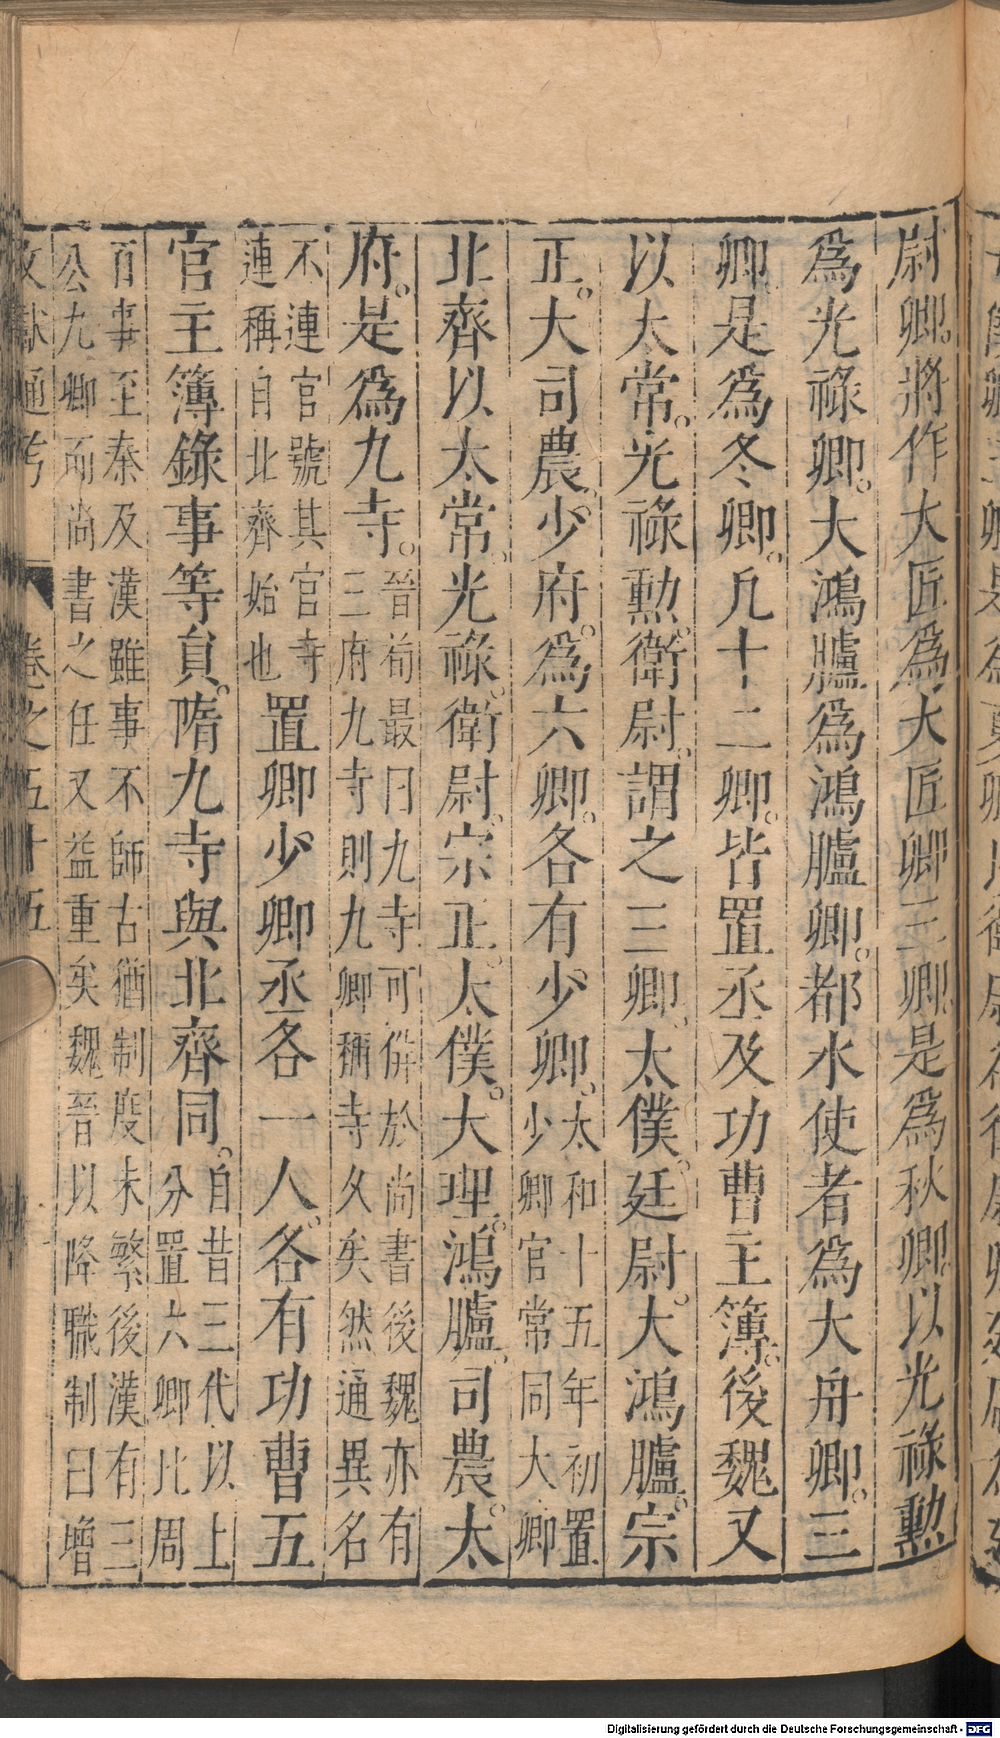 尉卿。將作大匠爲大匠卿三卿是爲秋卿。以光祿勲
爲光祿卿。大鴻臚爲鴻臚卿。都水使者爲大舟卿。三
卿是爲冬卿。凡十二卿。皆置丞及功曹主簿。後魏又
以太常。光祿勲。衛尉。謂之三卿。太僕。廷尉。大鴻臚。宗
正。大司農。少府。爲六卿。各有少卿。
太和十五年初置
少卿官常同大卿
北齊以太常。光祿。衛尉。宗正。太僕。大理。鴻臚。司農。太
府。是爲九寺。
晉荀最曰九寺可併於尚書後魏亦有
三府九寺則九卿稱寺久矣然通異名
不連官號其官寺
連稱自北齊始也
置卿少卿丞各一人。各有功曹五
官主簿錄事等員。隋九寺與北齊同。
自昔三代以上
分置六卿比周
百事至秦及漢雖事不師古猶制度未繁後漢有三
公九卿而尚書之任又益重矣魏晉以降職制日增
文獻通考 卷之五十五
Digitalisierung gefördert durch die Deutsche Forschungsgemeinschaft - DFG